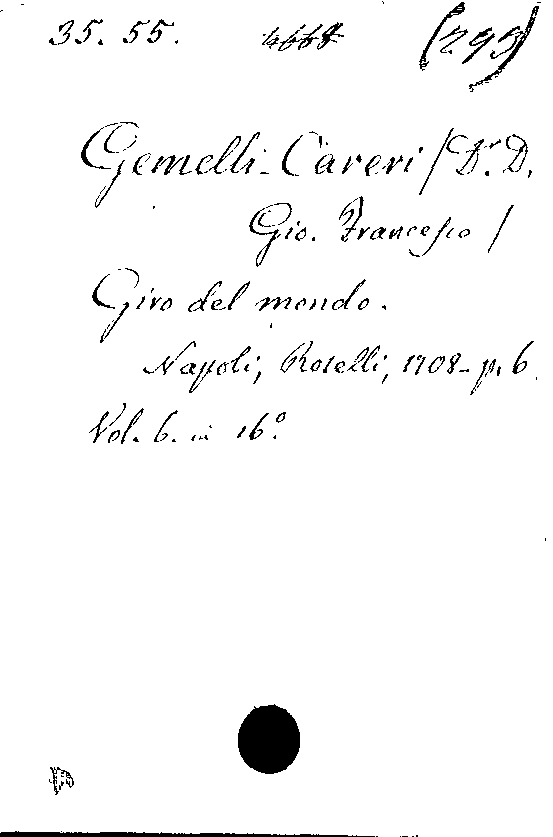 35. 55. 4668 (293)
Gemelli-Careri / Dr. D.
Gio. Francesco /
Giro del mondo.
Napoli, Roselli, 1708- p. 6.
Vol. 6. in 16º.